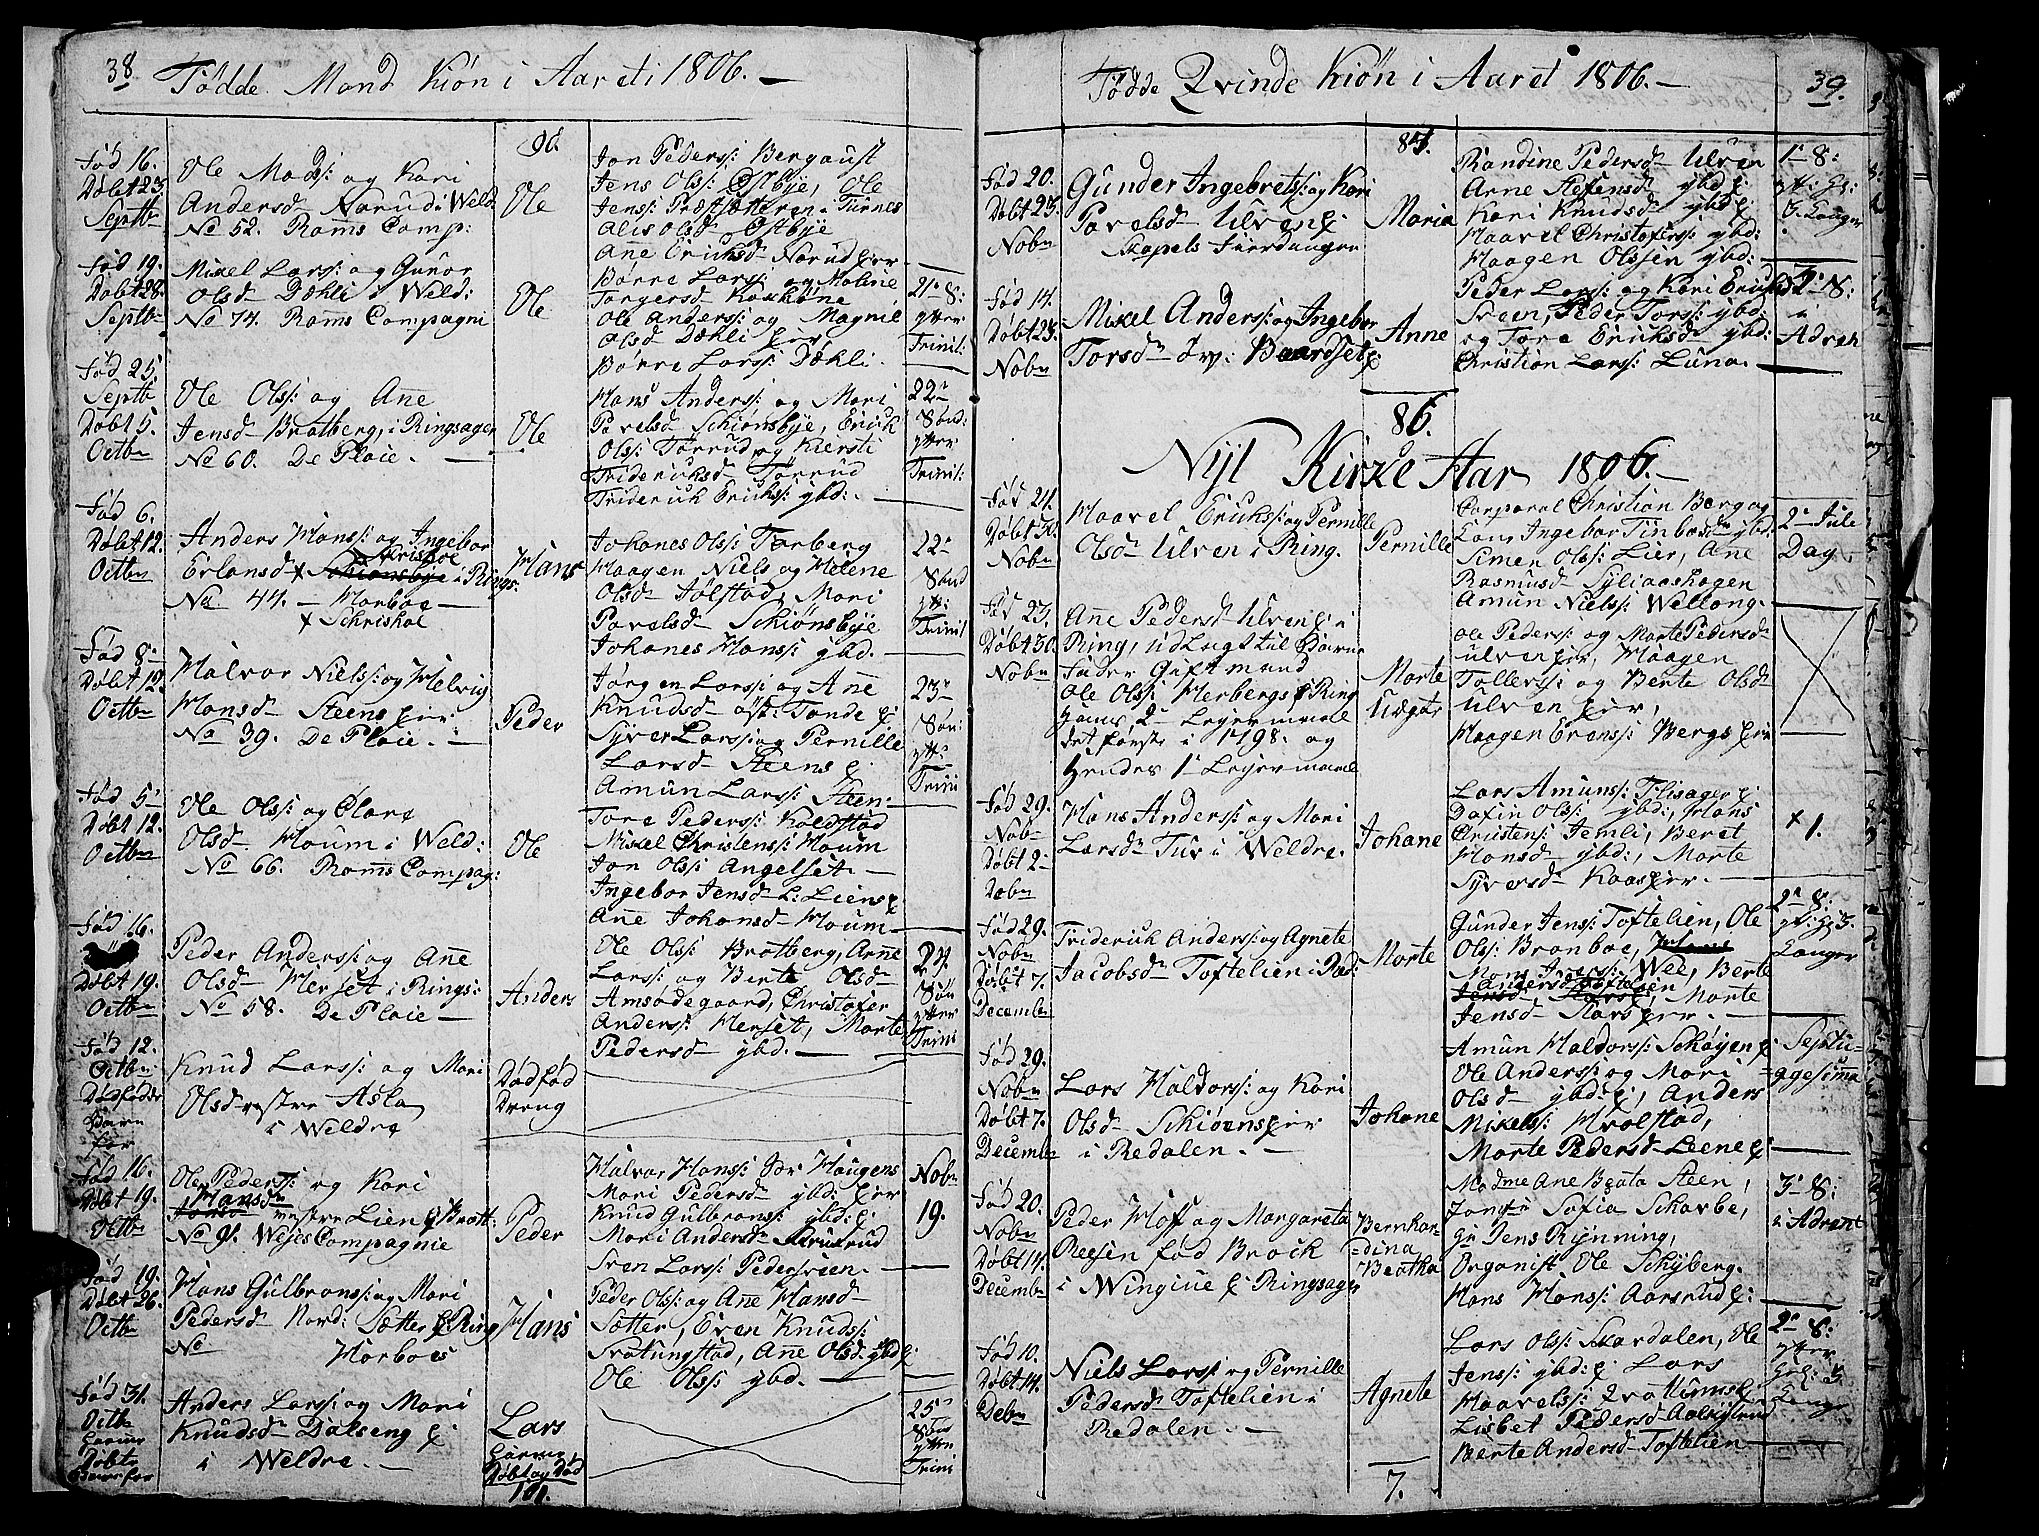 38
Fødde Mand Kiøn i Aaret 1806. —
90.
Fød 16.
Døbt 23
Septbr
Ole Madss: og Kari
Andersd Narud i Weld
No 52. Roms Comp:
Ole
Jon Pederss: Bergaust
Jens Olss: Østbye, Ole
Jenss: Præstsæteren i Furnes
Alis Olsd Østbye
Ane Ericksd Narud Eier
Fød 19.
Døbt 28.
Septbr
Mikel Larss: og Gunor
Olsd Dæhli i Weld:
No 74. Roms Compagni
Ole
Børre Larss: og Malene
Torgersd
Ole Anderss: og Magnil
Olsd Dæhli Eier
Børre Larss: Dæhli.
21n 8:
ytter
Trinit:
Fød 25.
Septb
Døbt 5.
Octbr
Ole Olss: og Ane
Jensd Bratberg, i Ringsager
No 60. De Ploie. —
Ole
Hans Anderss: og Mari
Pavelsd Schiønsbye, Erick
Olss: Torrud og Kiersti
Fridericksd Torrud
Friderich Ericks: ybd: —
22n
Sønd:
ytter
Trinit:
Fød 6.
Døbt 12.
Octbr
Anders Hanss: og Ingebor
Schrishoe
Erlansd x Schiønsbye i Rings:
No 44. — Horboe —
x Schrishoe
Hans
Johanes Olss: Torberg
Haagen Niels og Helene
Olsd Jølstad, Mari
Pavelsd Schiønsbye
Johanes Hanss: ybd. —
22n
Sønd
ytt:
Trinit
Fød 8n
Døbt 12.
Octbr
Halvor Nielss: og Helvig
Hansd Steens Eier
No 39. De Ploie. —
Peder
Jørgen Larss: og Ane
Knudsd øst: Tande E
Syver Larss: og Pernille
Larsd Steens E
Amun Larss: Steen.
23n
Søn:
ytt:
Trini
Fød 5n
Døbt 12.
Octbr
Ole Olss: og Clare
Olsd Houm i Weld:
No 66. Roms Compag:
Ole
Tore Pederss: Kaldstad
Mikel Christenss: Houm
Jon Olss: Angelset —
Ingebor Jensd L: Liens E
Ane Johansd Houm —
Fød 16.
Døbt 19.
Octbr
Peder Anderss: og Ane
Olsd Herset i Rings:
No 58. De Ploie —
Anders
Ole Olss: Bratberg, Arne
Larss: og Berte Olsd
Amsødegaard, Christofer
Anderss: Herset, Marte
Pedersd ybd. —
24.
Søn
ytter
Trini
Fød 12.
Octbr.
Dødføder
Barn
før
Knud Larss: og Mari
Olsd vestre Asla
i Weldre
Dødfød
Dreng
Fød 16.
Døbt 19.
Octbr
Ole Pederss: og Kari
Hansd
vestre Lien E Brøtt:
No 91. Wejes Compagnie
Peder
Halvor Hanss: Haugens
Mari Pedersd ybd: Eier
Knud Gulbranss: ybd: E
Mari Andersd
Sven Larss: Pedersveen. —
Nobr
19.
Fød 19.
Døbt 26.
Octbr
Hans Gulbranss: og Mari
Pedersd Nord: Sætter E Ring
No Horboes
Hans
Peder Olss: og Ane Hansd
Sætter, Even Knudss:
Svatungstad, Ane Olsd: ybd E
Ole Olss: ybd. —
Fød 31.
Octb
Døbt
Anders Larss: og Mari
Knudsd Dalseng E
i Weldre. —
Lars
Døbt og Død
101.
25n
Søn
ytter
Trini
Fødde Qvinde Kiøn i Aaret 1806. —
39.
84.
Fød 20.
Døbt 23.
Nobr
Gunder Ingebretss: og Kari
Pavelsd Ulven E:
Skapels Fierdungen
Maria
Randine Pedersd Ulven
Arne Stefensd ybd E:
Kari Knudsd ybd E:
Haavel Christoferss: ybd:
Haagen Olssen ybd:
1n 8:
ytt: H:
3. Konger
Fød 14.
Døbt 23.
Nobr
Mikel Anderss: og Ingebor
Torsd Baardset E
Anne
Peder Larss: og Kari Ericksd
Sveen, Peder Torss: ybd:
og Tore Ericksd ybd:
Christian Larss: Luna. —
2n 8:
i
Advent
86.
Nyt Kirke Aar 1806. —
Fød 24.
Døbt 30.
Nobr
Haavel Erickss: og Pernille
Olsd Ulven i Ring.
Pernille
Corporal Christian Berg og
Kone Ingebor Tinboe ybd:
Simen Olss: Lier, Ane
Rasmusd Syliaashagen
Amun Nielss: Wellong.
2n Jule
Dag.
Fød 23.
Døbt 30.
Nobr
Ane Pedersd Ulven E i
Ring, udlagt til Barne
Fader Gift mand
Ole Olss: Herbergs E Ring
hans 2n Leyermaal
det første i 1798. og
hendes 1n Leyermaal
Marte
Uægte
Ole Pederss: og Marte Pedersd
Ulven Eier, Haagen
Tollerss: og Berte Olsd
Ulven Eier,
Haagen Evenss: Bergs Eier
Fød 29.
Nobr
Døbt 2n
Debr
Hans Anderss: og Mari
Larsd Tuv i Weldre.
Johane
Lars Amunss: Flisager E
Dafin Olss: ybd:, Hans
Cristenss: Jemli, Beret
Hansd ybd:, Marte
Syversd Kaas Eier. —
x 1.
Fød 29.
Nobr
Døbt 7.
Decembr
Friderich Anderss: og Agnete
Jacobsd Toftelien i Red:
Marte
Gunder Jenss: Toftelien, Ole
Olss: Branboe,
Hans Iverss: Wee, Berte
Andersd Toftelien
Marte
Jensd Kors Eier. —
2n 8:
yt: H: 3.
Konger
Fød 29.
Nobr
Døbt 7.
Decembr
Lars Haldorss: og Kari
Olsd Schiøens Eier
i Redalen. —
Johane
Amun Haldorss: Schøyen E
Ole Anderss: og Mari
Olsd ybd: E, Anders
Mikelss: Hvalstad,
Marte Pedersd Leene E
Septu=
=agesima
Fød 20.
Nobr
Døbt 14.
Decembr
Peder Hoff og Margareta
Reesen fød Brock
i Wingiue E Ringsager
Bernhar=
=dina
Beatha
Madme Ane Beata Steen,
Jomfr Sofia Scharbe,
Hr Jens Rynning,
Organist Ole Schyberg.
Hans Hanss: Aarsrud E:
3n 8:
i Advent
Fød 10.
Døbt 14.
Debr
Niels Larss: og Pernille
Pedersd Toftelien i
Redalen. —
Agnete
Lars Olss: Skardalen, Ole
Jenss: ybd: E Lars
Haavelss:
Lisbet Pedersd
Berte Andersd Toftelien
2n 8:
ytter
3
Konger
7.